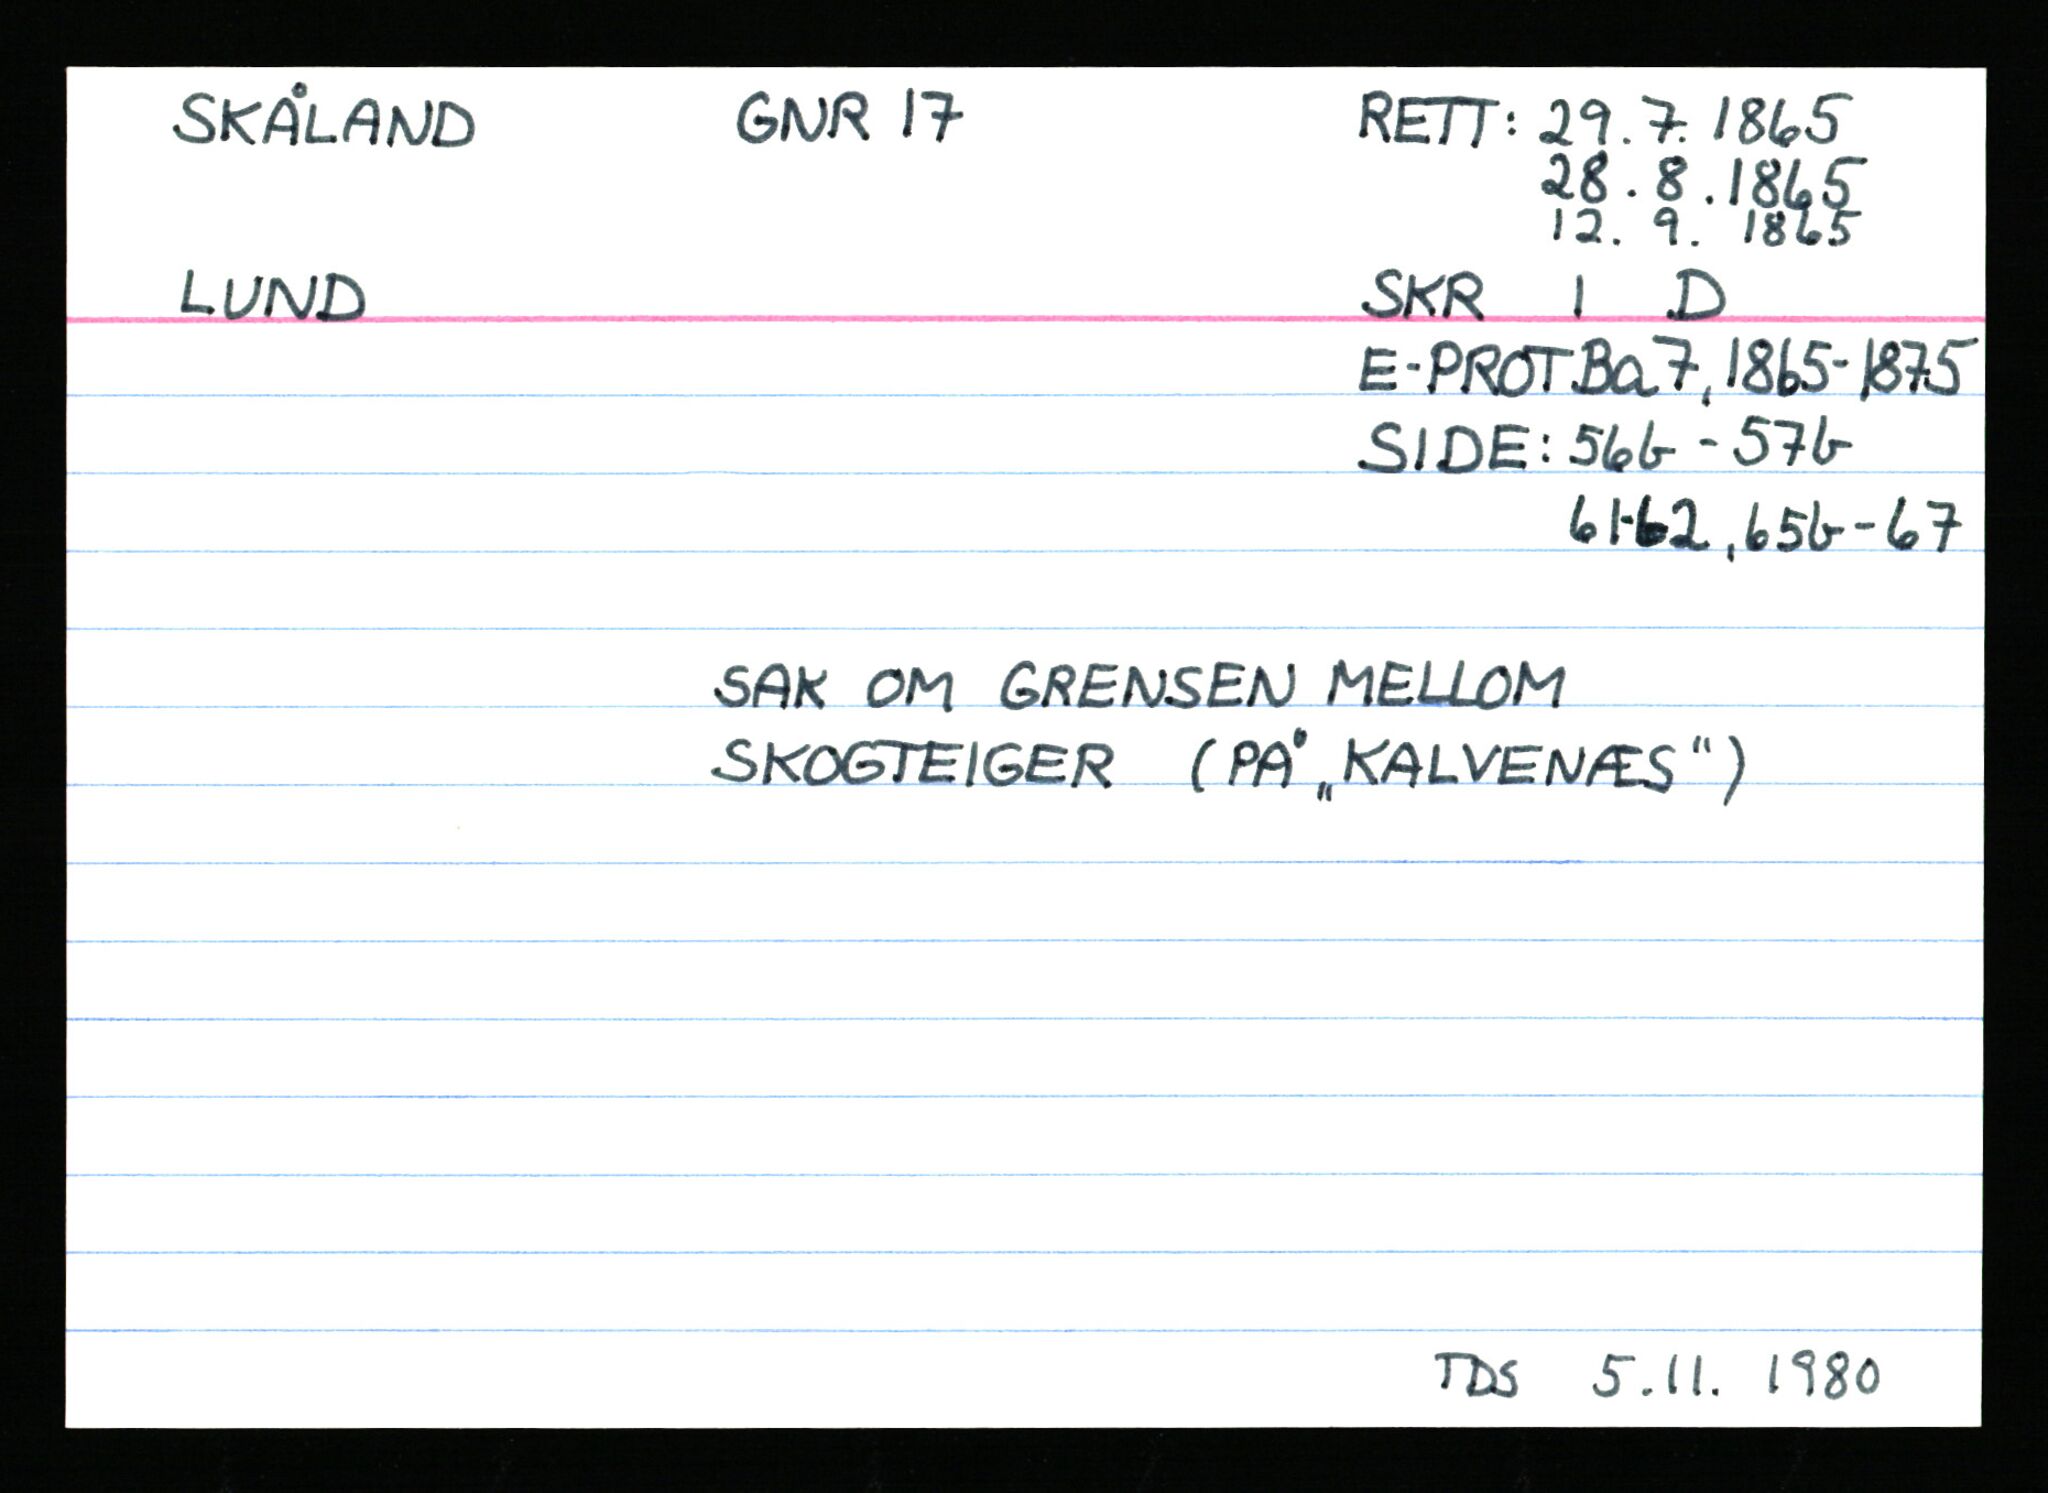 SKÅLAND GNR 17 RETT: 29.7.1865
28.8.1865
12.9.1865
LUND SKR I D
E-PROT Ba 7, 1865-1875
SIDE: 56b-57b
61-62, 65b-67
SAK OM GRENSEN MELLOM
SKOGTEIGER (PÅ „KALVENÆS“)
TDS 5.11.1980